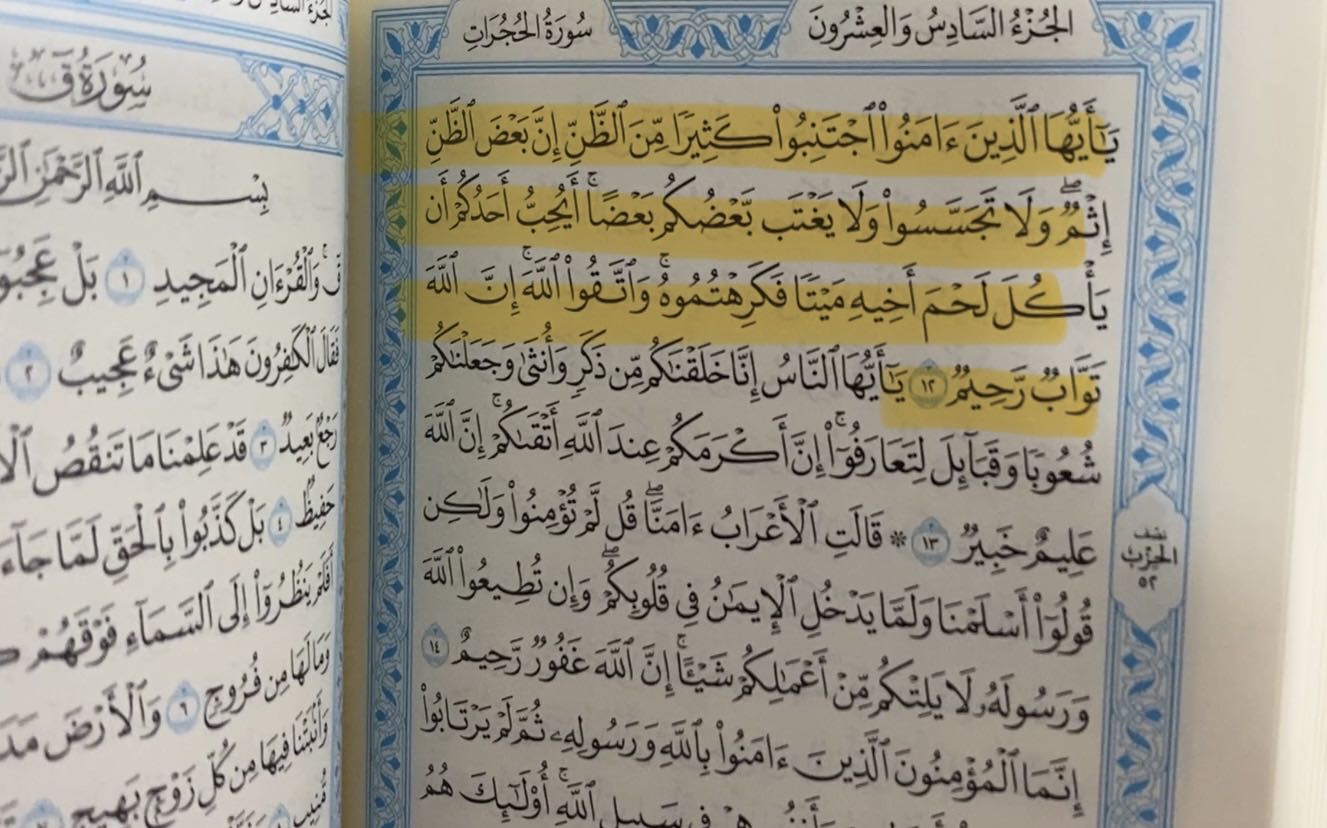 الجُزْءُ السَّادِسُ وَالعِشْرُونَ
سُورَةُ الحُجُرَاتِ
يَٰٓأَيُّهَا ٱلَّذِينَ ءَامَنُوا۟ ٱجْتَنِبُوا۟ كَثِيرًا مِّنَ ٱلظَّنِّ إِنَّ بَعْضَ ٱلظَّنِّ
إِثْمٌ ۖ وَلَا تَجَسَّسُوا۟ وَلَا يَغْتَب بَّعْضُكُم بَعْضًا ۚ أَيُحِبُّ أَحَدُكُمْ أَن
يَأْكُلَ لَحْمَ أَخِيهِ مَيْتًا فَكَرِهْتُمُوهُ ۚ وَٱتَّقُوا۟ ٱللَّهَ ۚ إِنَّ ٱللَّهَ
تَوَّابٌ رَّحِيمٌ ١٢ يَٰٓأَيُّهَا ٱلنَّاسُ إِنَّا خَلَقْنَٰكُم مِّن ذَكَرٍ وَأُنثَىٰ وَجَعَلْنَٰكُمْ
شُعُوبًا وَقَبَآئِلَ لِتَعَارَفُوٓا۟ ۚ إِنَّ أَكْرَمَكُمْ عِندَ ٱللَّهِ أَتْقَىٰكُمْ ۚ إِنَّ ٱللَّهَ
عَلِيمٌ خَبِيرٌ ١٣ ۞ قَالَتِ ٱلْأَعْرَابُ ءَامَنَّا ۖ قُل لَّمْ تُؤْمِنُوا۟ وَلَٰكِن
قُولُوٓا۟ أَسْلَمْنَا وَلَمَّا يَدْخُلِ ٱلْإِيمَٰنُ فِى قُلُوبِكُمْ ۖ وَإِن تُطِيعُوا۟ ٱللَّهَ
وَرَسُولَهُۥ لَا يَلِتْكُم مِّنْ أَعْمَٰلِكُمْ شَيْـًٔا ۚ إِنَّ ٱللَّهَ غَفُورٌ رَّحِيمٌ ١٤
إِنَّمَا ٱلْمُؤْمِنُونَ ٱلَّذِينَ ءَامَنُوا۟ بِٱللَّهِ وَرَسُولِهِۦ ثُمَّ لَمْ يَرْتَابُوا۟
سَبِيلِ ٱللَّهِ ۚ أُو۟لَٰٓئِكَ هُمُ
نصف
الحزب
٥٢
سُورَةُ قٓ
بِسْمِ ٱللَّهِ ٱلرَّحْمَٰنِ
قٓ ۚ وَٱلْقُرْءَانِ ٱلْمَجِيدِ ١ بَلْ
فَقَالَ ٱلْكَٰفِرُونَ هَٰذَا شَىْءٌ عَجِيبٌ ٢
رَجْعٌۢ بَعِيدٌ ٣ قَدْ عَلِمْنَا مَا تَنقُصُ
حَفِيظٌۢ ٤ بَلْ كَذَّبُوا۟ بِٱلْحَقِّ لَمَّا
أَفَلَمْ يَنظُرُوٓا۟ إِلَى ٱلسَّمَآءِ فَوْقَهُمْ
وَمَا لَهَا مِن فُرُوجٍ ٦ وَٱلْأَرْضَ
وَأَنۢبَتْنَا فِيهَا مِن كُلِّ زَوْجٍۭ بَهِيجٍ